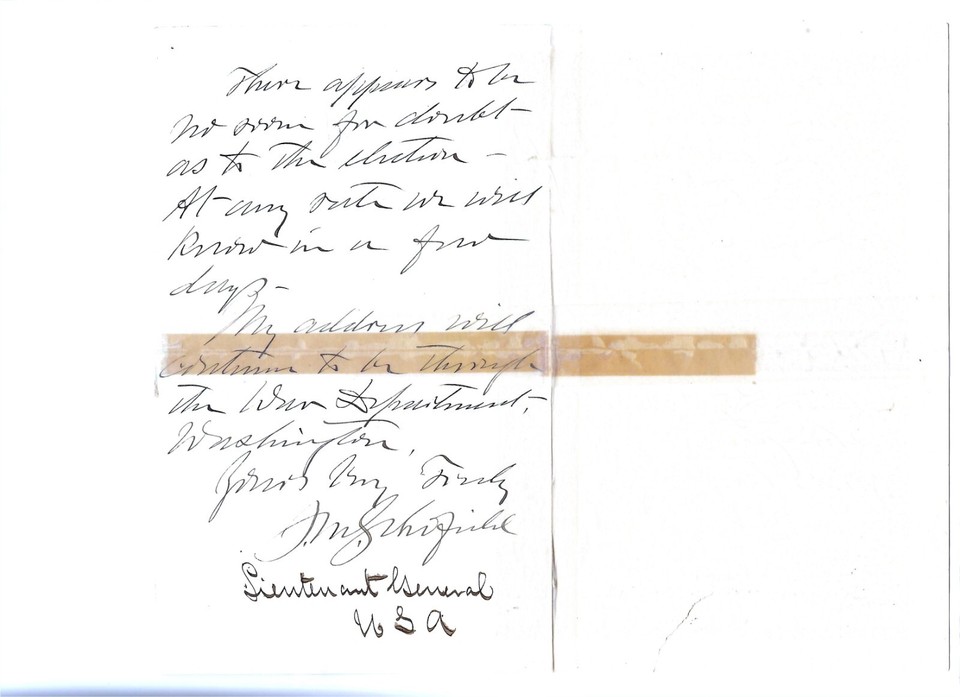 There appears to be
no room for doubt
as to the election –
At any rate we will
know in a few
days –
My address will
continue to be through
the War Department,
Washington,
Yours Very Truly
J.M. Schofield
Lieutenant General
U S A